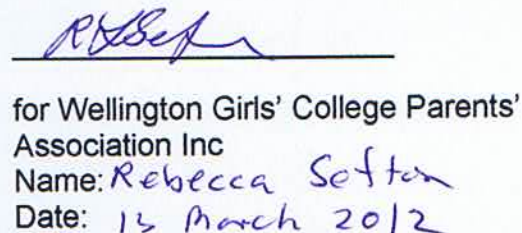 for Wellington Girls' College Parents'
Association Inc
Name: Rebecca Sefton
Date: 13 March 2012